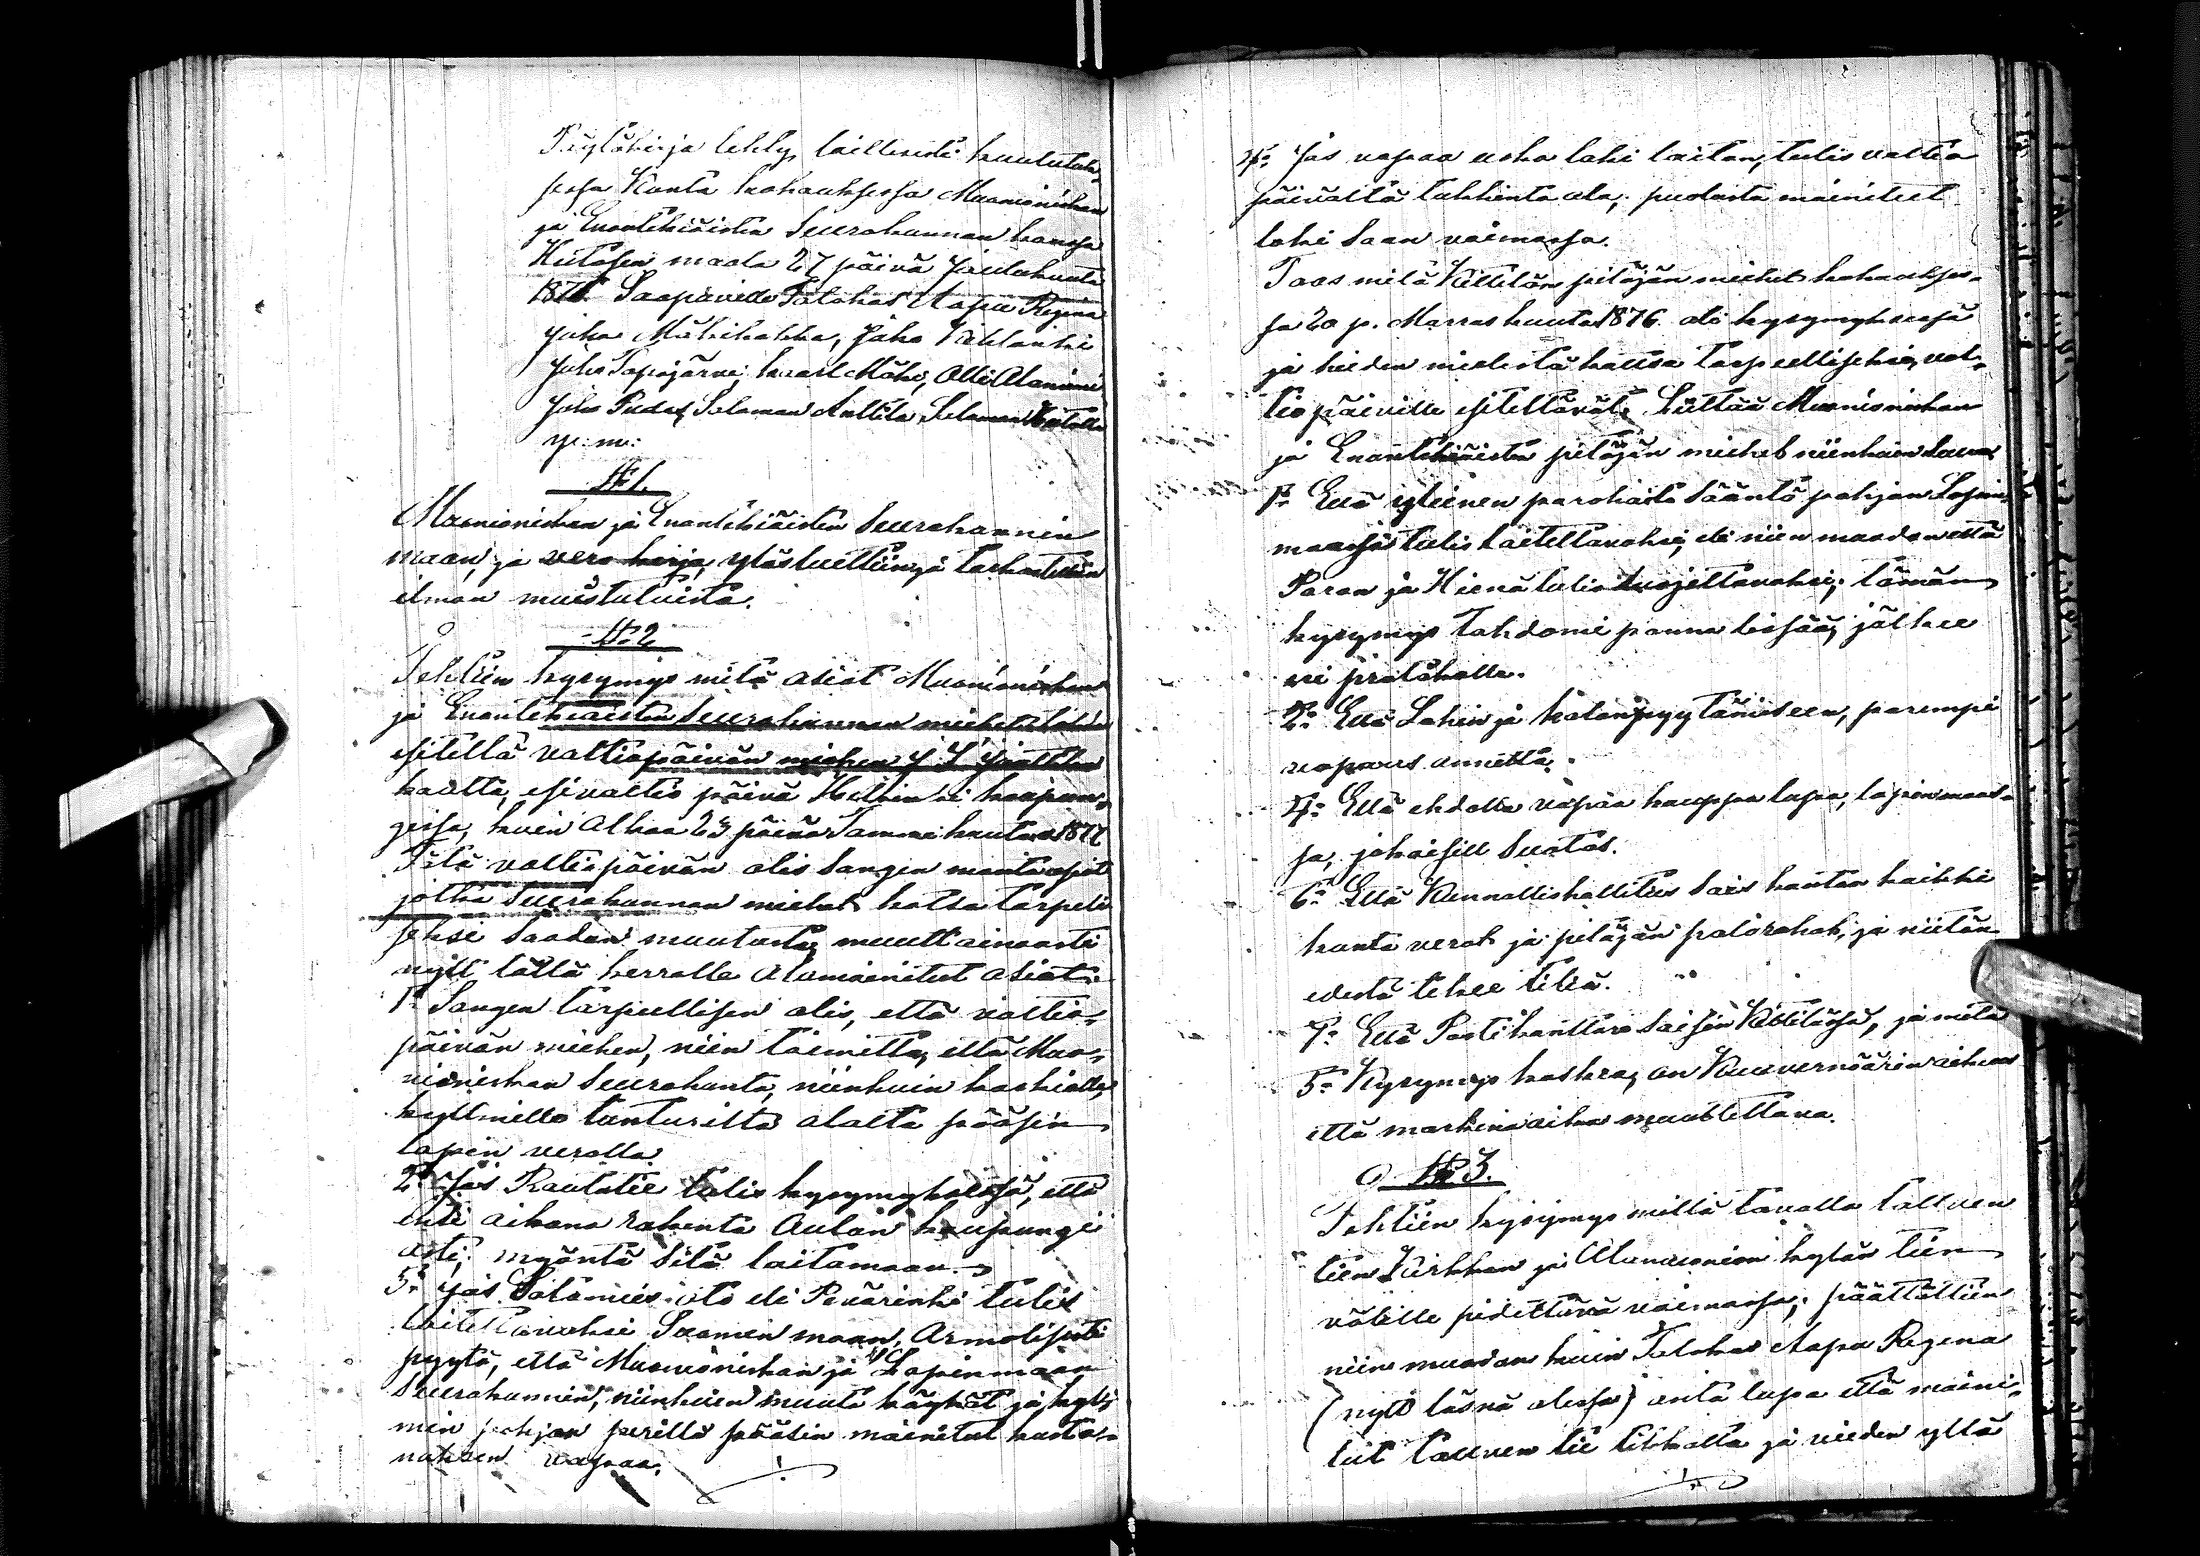 Pöytäkirja tehty, laillisesti kuulutetus,
sessa Kunta kokouksessa Muonionniskan
ja Enontekiäisten Seurakunnan kanssa
Hietasen maala 27 päivä Joulukuuta
1876. Saapuville Talokas Aapu Regina
Juho Mäkikokko, Juho Kihlanki
Juho Tapojärvi, Kaarl Mäki, Olli Alamuoni
Juho Pudas, Salaman Anttila, Salaman Hietalla
yr: m:
№ 1.
Muonionniskan ja Enontekiäisten Seurakunnin
maan, ja vero kirja, ylösluettiin ja tarkastettiin
ilman muistutuista.
№ 2
Tehtiin kysymys mitä asiat Muonionniskan
ja Enontekiäisten Seurakunnan miehet tahto
esitellä valtiopäivän miehen
kautta, esi valtio päivä Helsin ki kaupun,
gissa, kuin alkaa 23 päivä Tammi kuuta 1877
Tätä valtiopäivän olis sangen monta asiat
jotka Seurakunnan miehet katsa tarpeli
seksi saadan muutosta, muutt ainoasti
nyt tällä kerralla alamainitut asiat:
1º Sangen tarpeellisen olis, että valtio-
päivän miehen, niin toimitta, että Muo-
nionniskan Seurakunta, niinkuin kaskialle,
kyllmille tunturilta alalta pääsin
lapin verolla.
2º Jos Rautatie tulis kysymyksessä, että
ensi aikana rakenta Oulun kaupungi
asti, myöntä sitä laitamaan.
3º Jos Sotamies-oto eli Pevärinki tulis
laitettavaksi Suomen maan, Armolisesti
pyytä, että Muonionniskan ja Lapinmaan
Seurakunnin, niinkuin muuta käyhät ja kyl,
min pohjan perillä pääsin mainitut kustan-
nuksen vapaa.
4º Jos vapaa usko laki laitan, tulis valtio
päivältä tukkinta ala, puolusta mainitut
laki saan voimassa.
Taas mitä Kittilän pitäjän miehet kokoukses-
sa 20 p. Marraskuuta 1876 oli kysymyksessä
ja heiden mielestä katsa tarpeelliseksi, val-
tiopäiville esiteltävät, liittää Muonionniskan
ja Enontekiäisten pitäjän miehet niinkuin
1º Että yleinen parahasta sääntö pohjan Lapin,
maassa tulis laitettavaksi, eli niin muodon että
Poron ja Hienä tulis suojettavaksi; tämän
kysymys tahdomi panna lisää, jälkee
vi prötokolle.
2º Että Lohin ja kalan pyytämiseen, parempi
vapaus annetta.
4º Että ehdolla vapaa kauppa lapa, lapinmaas-
sa, jokaisill suotas.
6º Että Kunnallishallitus sais kantaa kaikki
kunta verot ja pitäjän palorahat, ja niitän
edestä tekee tiliä.
7º Että Posti kanttore saisin Kittilässä, ja mitä
5º Kysymys koskee, on Kuuvernöörin aikaa
että markina aikaa muutettava.
№ 3.
Tehtiin kysymys millä tavalla tallven
tien Kirkkon ja Alamuonion kylän tien
välille pidettävä voimassa; päättättiin
niin muodon kuin Talokas Aapu Regina
(nyt läsnä olessa) anta lupa että maini-
tut tallven tie tikkatta ja vieden yllä